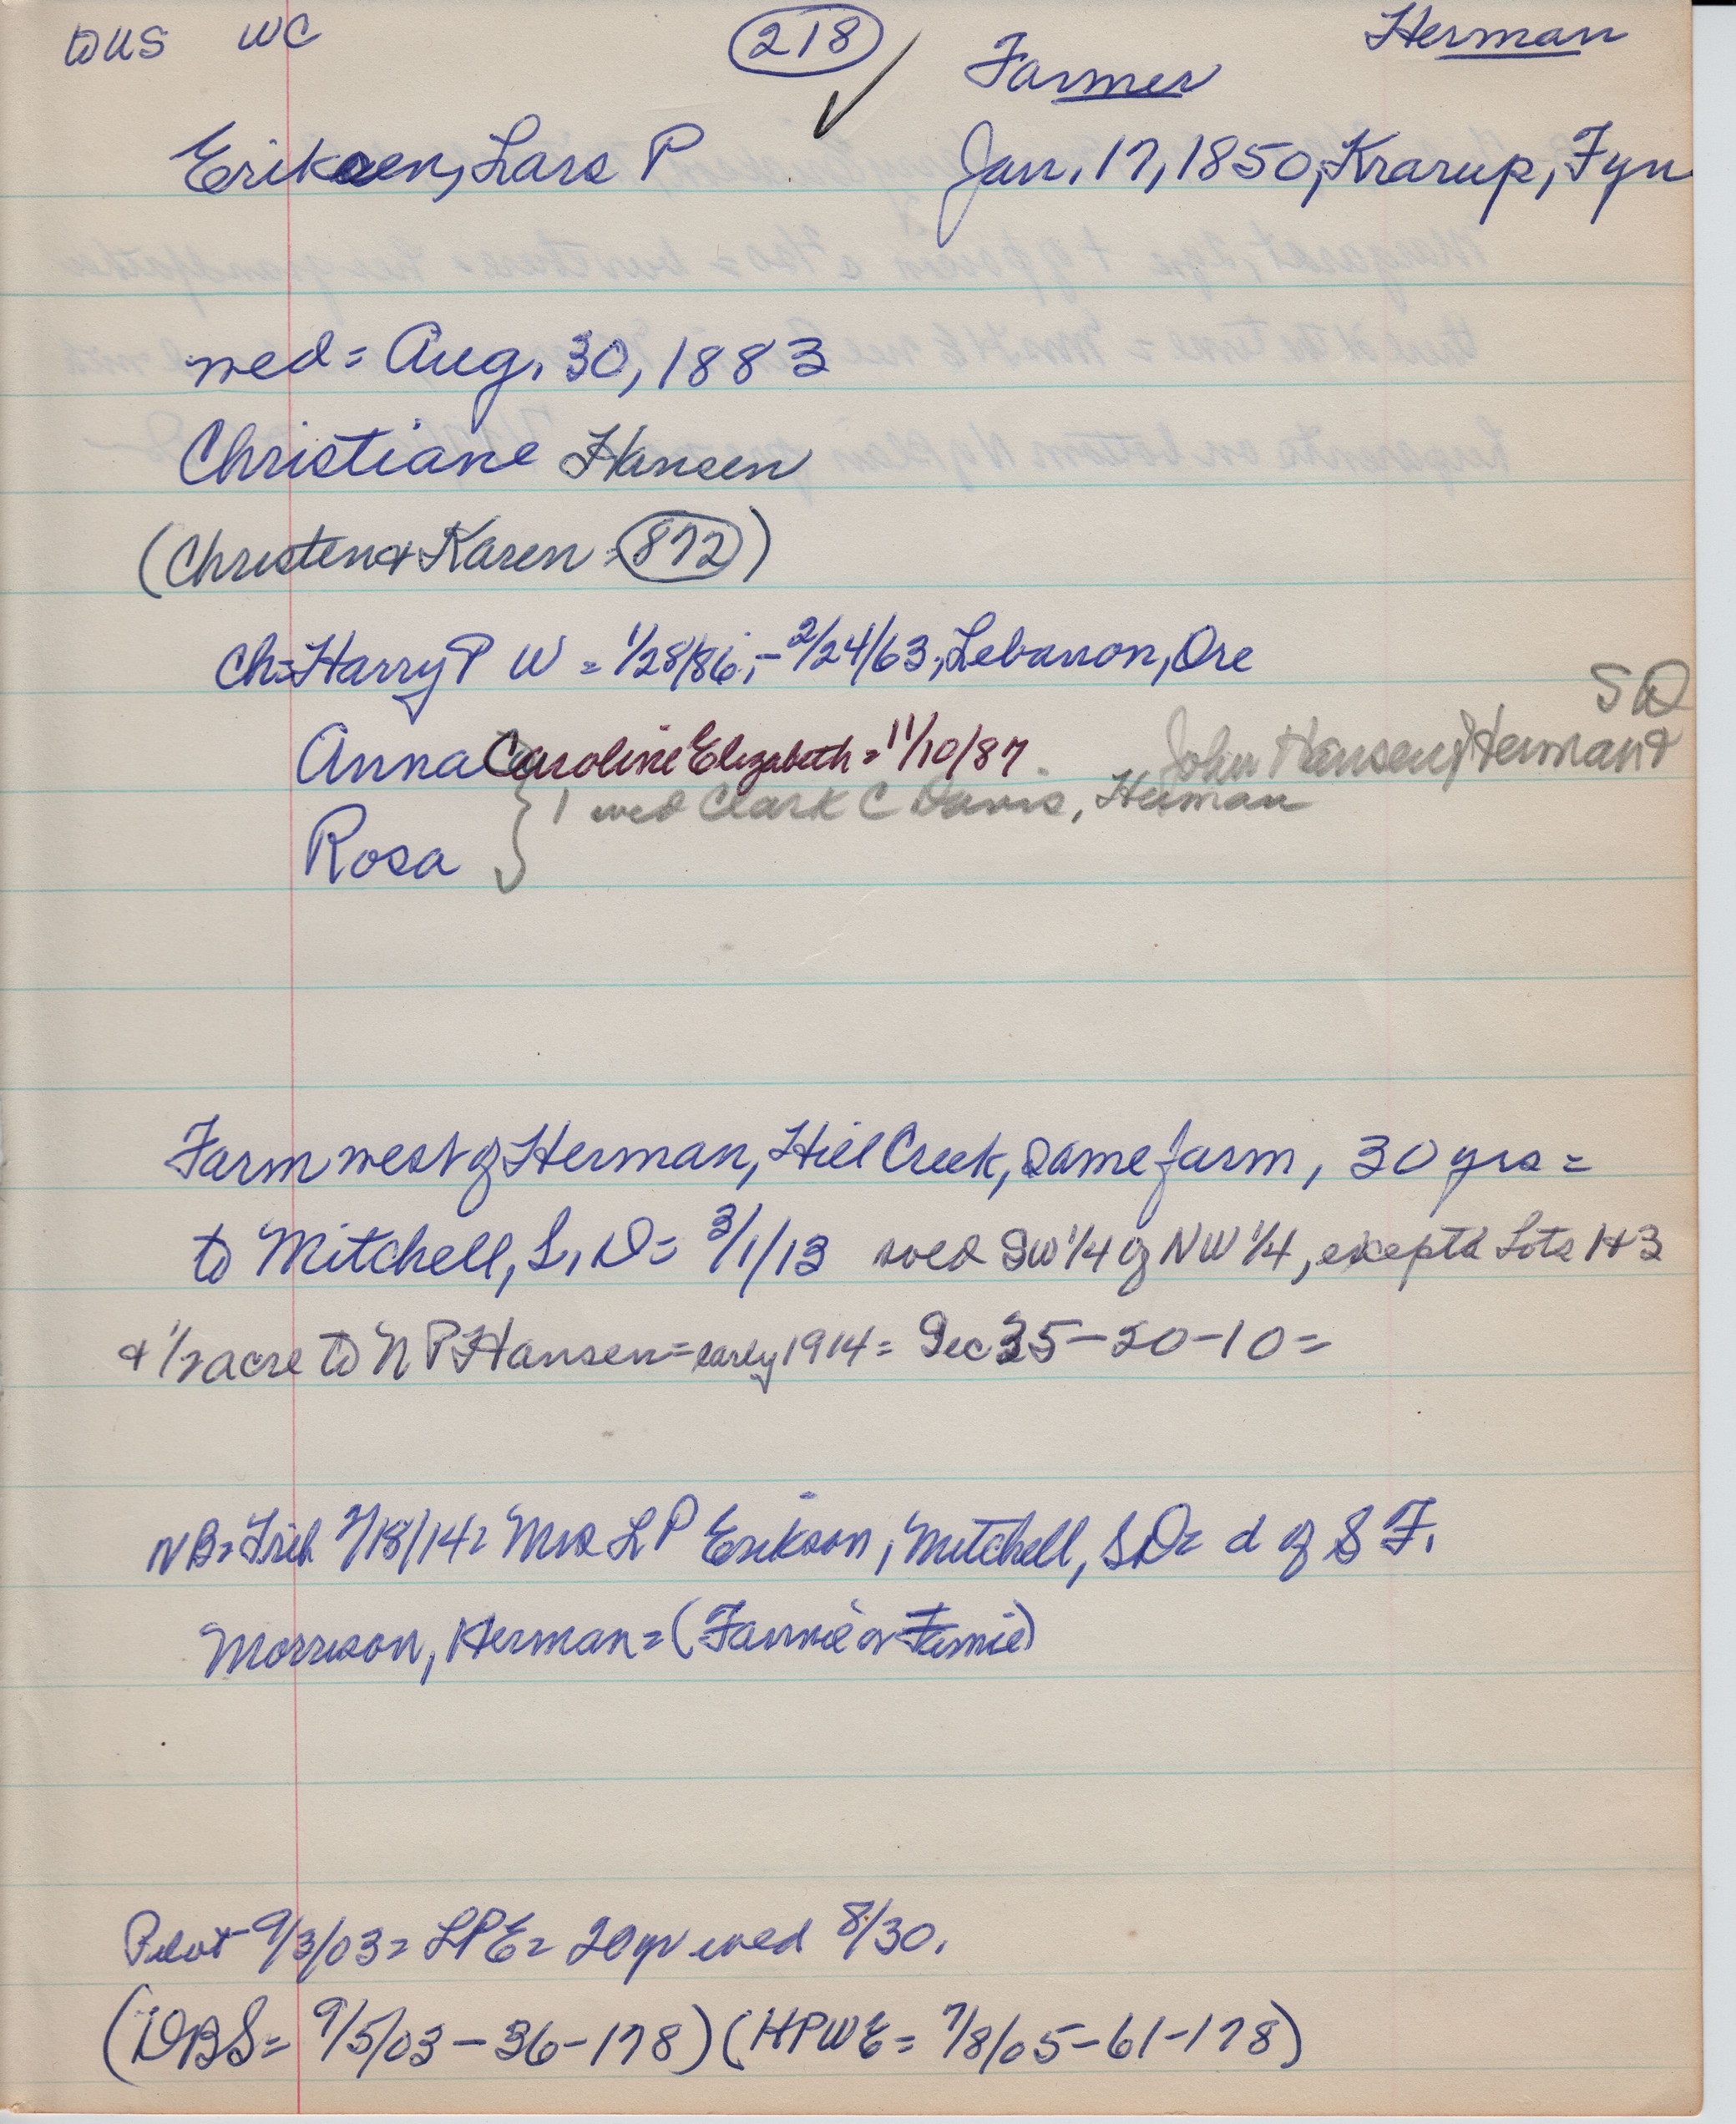 to US WC 218 Herman
Farmer
Eriksen, Lars P Jan. 17, 1850, Krarup, Fyn
wed = Aug. 30, 1883
Christiane Hansen
(Christen & Karen = 872)
Ch = Harry P W = 1/28/86; - 2/24/63, Lebanon, Ore
S D
Anna Caroline Elizabeth = 11/10/87 John Hansen, Herman &
1 wed Clark C Davis, Herman
Rosa
Farm west of Herman, Hill Creek, same farm, 30 yrs =
to Mitchell, S, D = 3/1/13 sold SW 1/4 of NW 1/4, except Lots 1 & 3
& 1/2 acre to N P Hansen = early 1914 = Sec 35 - 20 - 10 =
NB = 7/18/14 = Mrs L P Erikson, Mitchell, S D = d of S F.
Morrison, Herman = (Fannie or Famie)
Pilot - 9/3/03 = LPE = 20 yr wed 8/30.
(DBS = 9/5/03 - 36 - 178) (HPWE = 7/8/05 - 61 - 178)